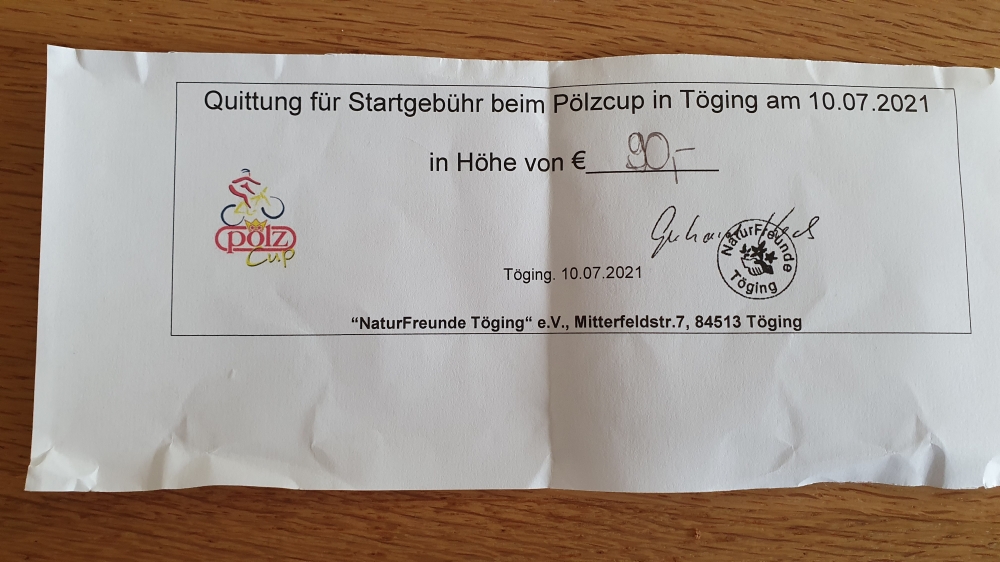 Quittung für Startgebühr beim Pölzcup in Töging am 10.07.2021
in Höhe von € 90,-
pölz
Cup
NaturFreunde
Töging
Töging. 10.07.2021
“NaturFreunde Töging“ e.V., Mitterfeldstr.7, 84513 Töging